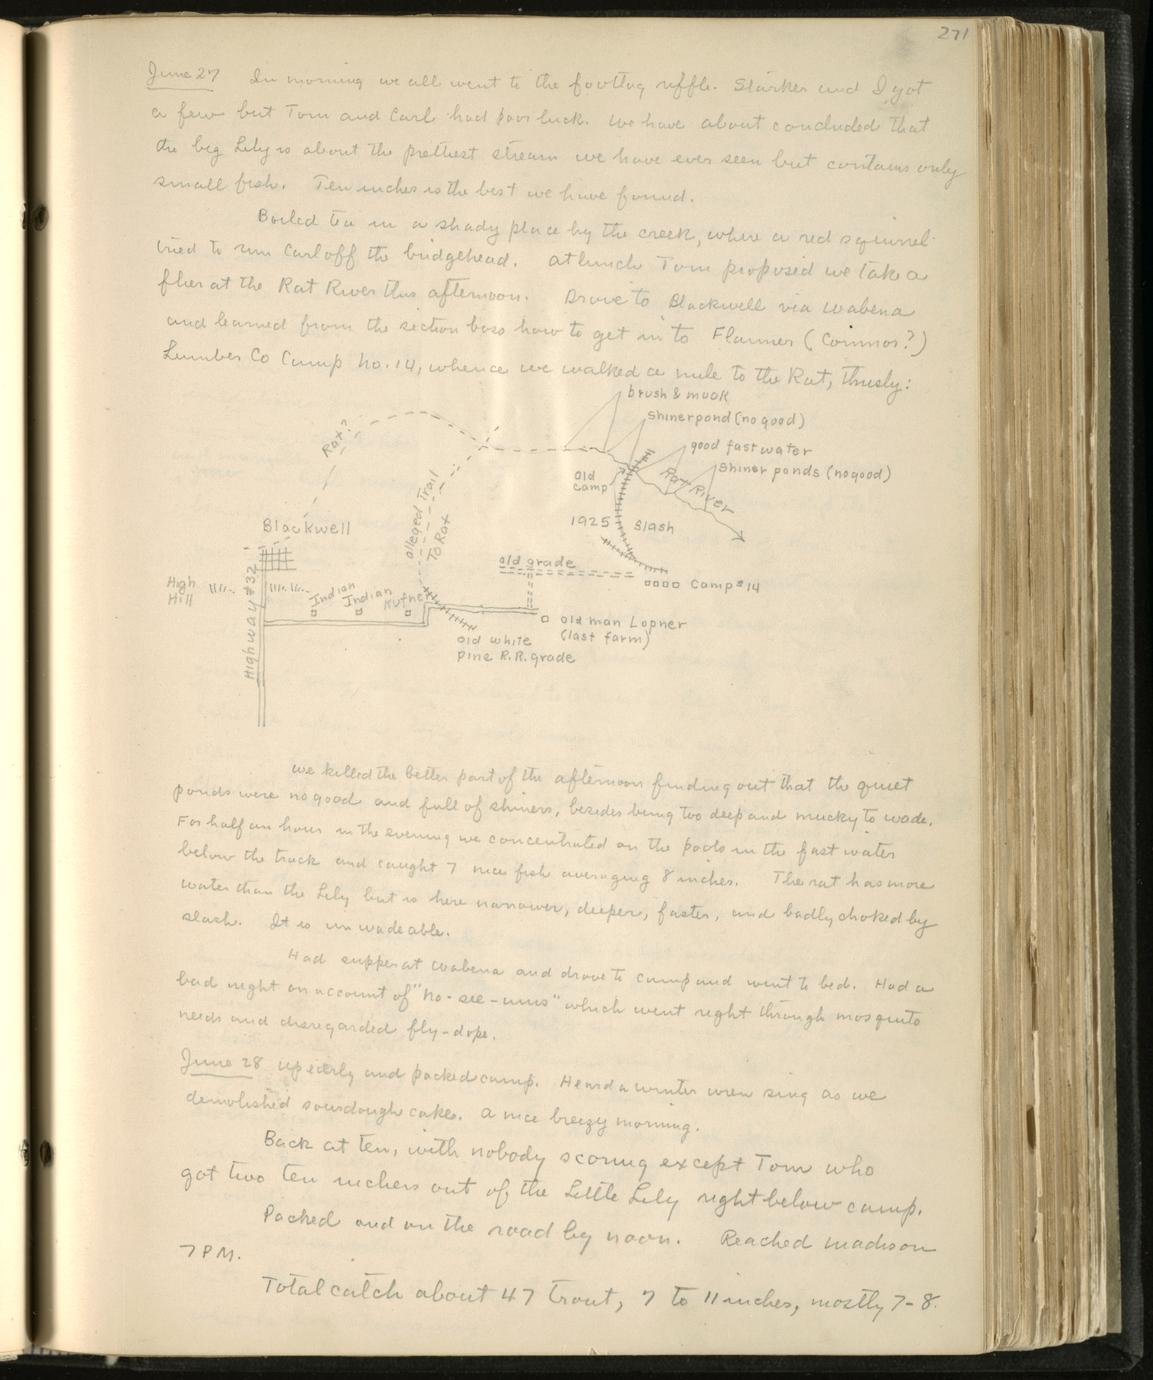 271
June 27 In morning we all went to the footlog riffle. Starker and I got
a few but Tom and Carl had poor luck. We have about concluded that
the big Lily is about the prettiest stream we have ever seen but contains only
small fish. Ten inches is the best we have found.
Boiled tea in a shady place by the creek, where a red squirrel
tried to run Carl off the bridgehead. At lunch Tom proposed we take a
flier at the Rat River this afternoon. Drove to Blackwell via Wabena
and learned from the section boss how to get in to Flanner (Connor?)
Lumber Co Camp No. 14, whence we walked a mile to the Rat, thusly:
brush & muck
shiner pond (no good)
good fast water
Shiner ponds (no good)
Rat?
Old
Camp
Rat River
alleged Trail
To Rat
1925 Slash
Blackwell
old grade
Camp #14
High
Hill
Highway #32
Indian
Indian
Kufne
old man Lopner
(last farm)
old white
pine R.R. grade
We killed the better part of the afternoon finding out that the quiet
ponds were no good and full of shiners, besides being too deep and mucky to wade.
For half an hour in the evening we concentrated on the pools in the fast water
below the track and caught 7 nice fish averaging 8 inches. The rat has more
water than the Lily but is here narrower, deeper, faster, and badly choked by
slash. It is unwadeable.
Had supper at Wabena and drove to camp and went to bed. Had a
bad night on account of "no-see-ums" which went right through mosquito
nets and disregarded fly-dope.
June 28 Up early and packed camp. Heard a winter wren sing as we
demolished sourdough cakes. A nice breezy morning.
Back at ten, with nobody scoring except Tom who
got two ten inchers out of the Little Lily right below camp.
Packed and on the road by noon. Reached Madison
7 PM.
Total catch about 47 trout, 7 to 11 inches, mostly 7-8.